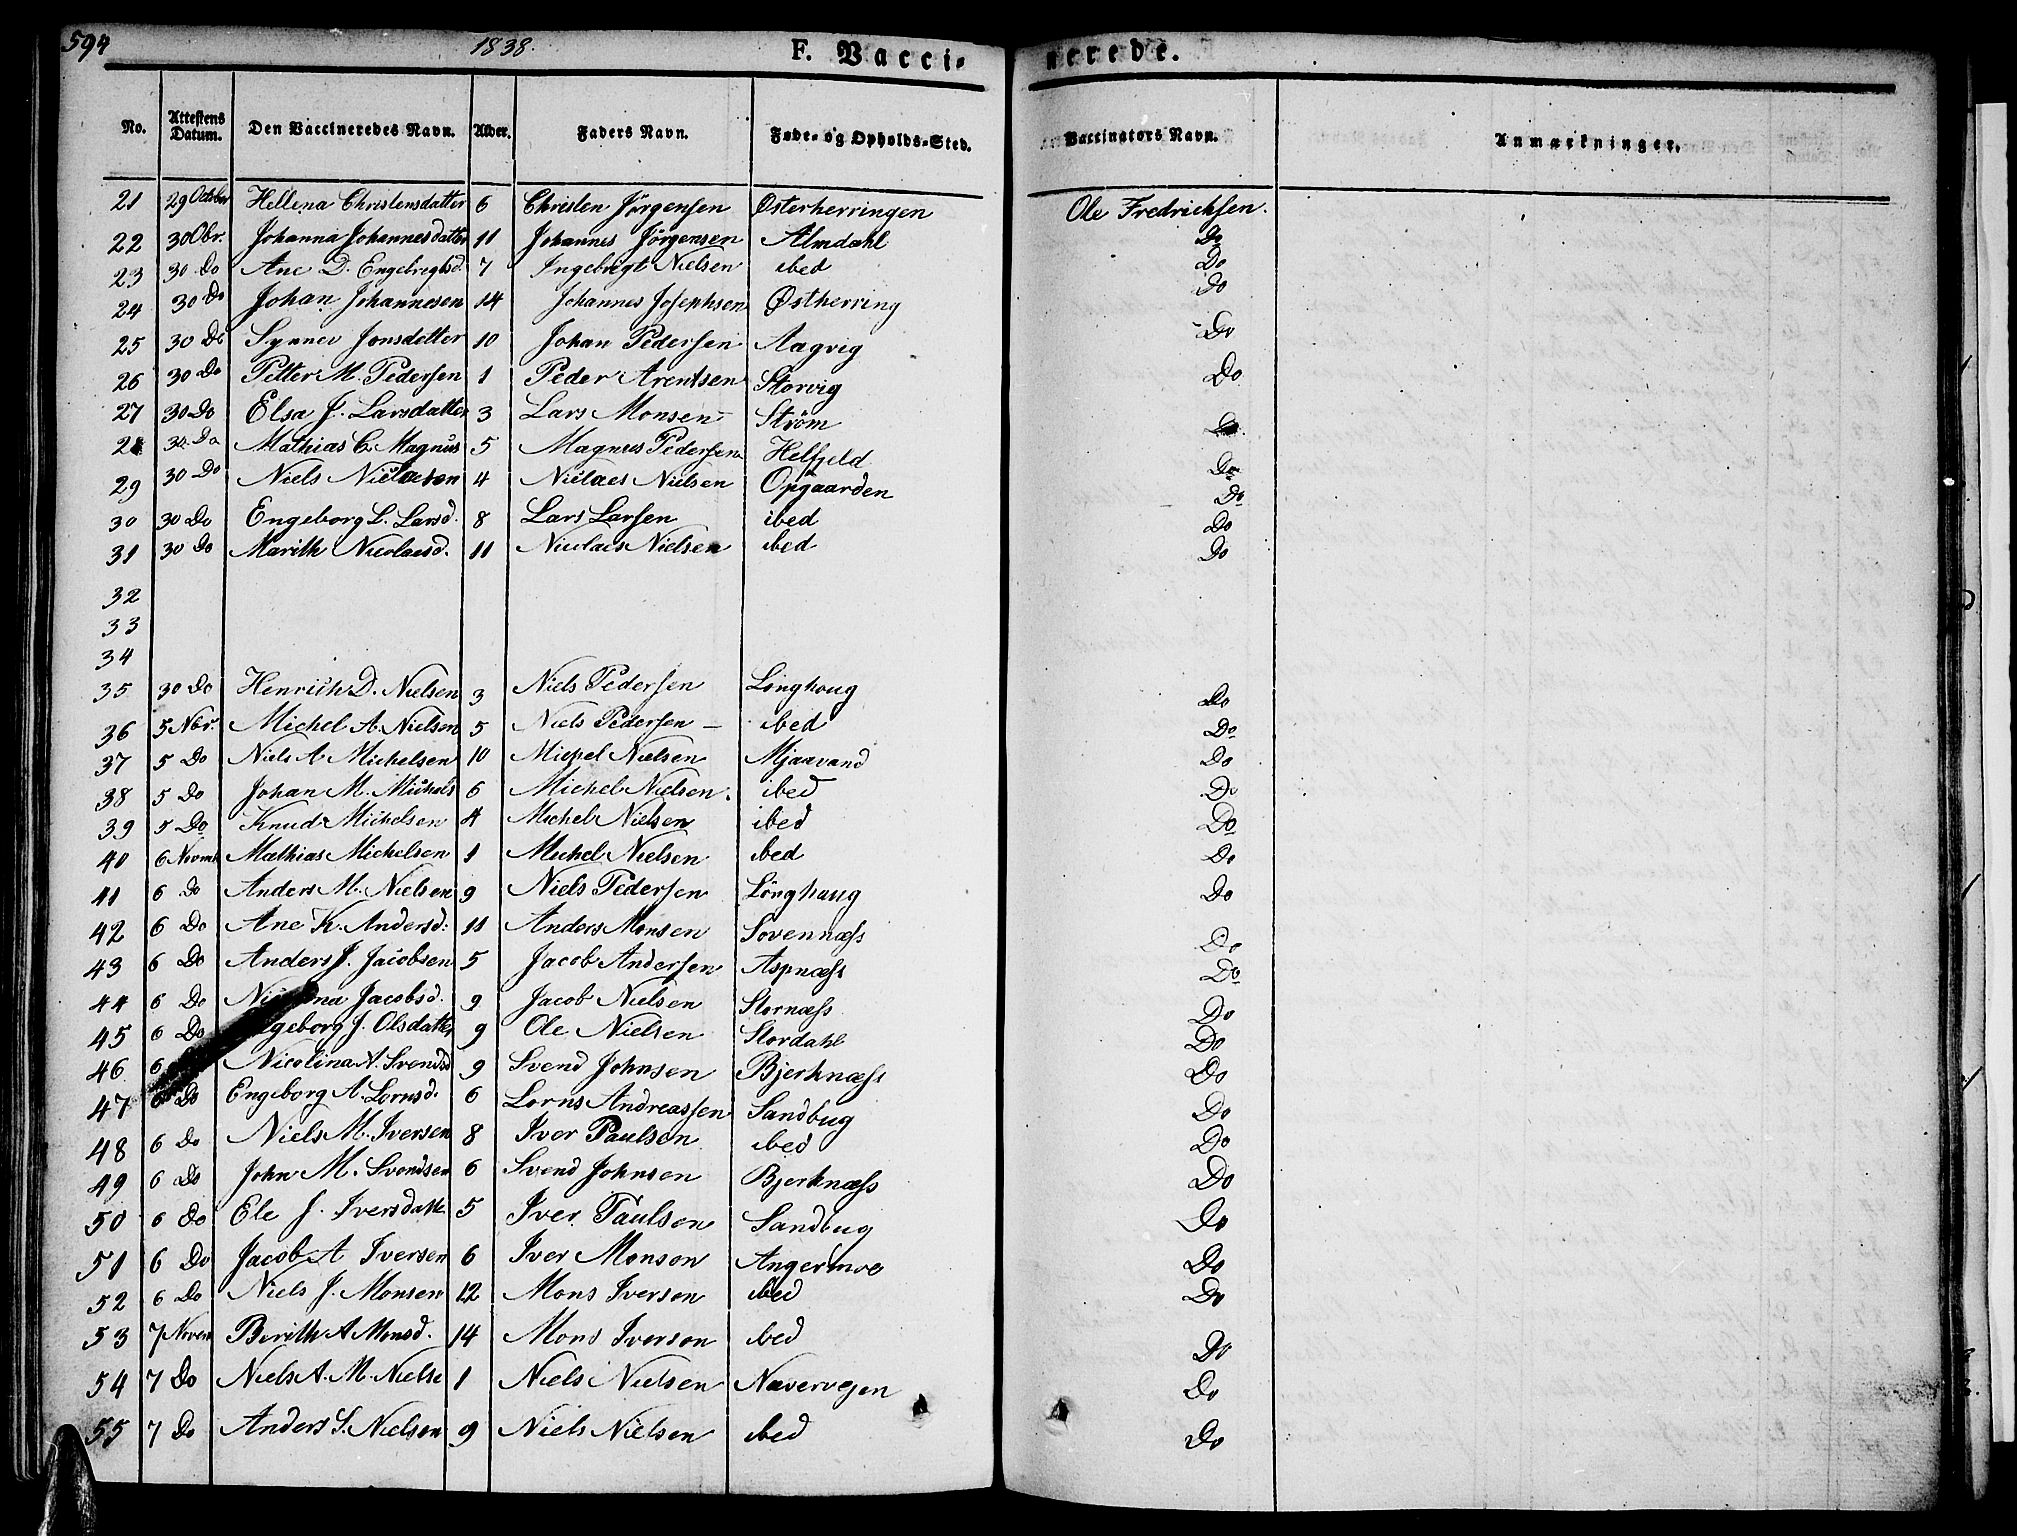 594 1838. F. Vacci- nerede.
No. Attestens Datum. Den Vaccineredes Navn. Alder. Faders Navn. Føde- og Opholds-Sted. Vaccinators Navn. Anmærkninger.
21 29 October Hellena Christensdatter 6 Christen Jörgensen Østerherringen Ole Fredrichsen.
22 30 Obr. Johanna Johannesdatter 11 Johannes Jörgensen Almdahl Do
23 30 Do Ane D. Engebregtsd. 7 Ingebrigt Nielsen ibed Do
24 30 Do Johan Johannesen 14 Johannes Josephsen Østherring Do
25 30 Do Synnev Jonsdatter 10 Johan Pedersen Aagvig Do
26 30 Do Petter M. Pedersen 1 Peder Arentsen Storvig Do
27 30 Do Elsa J. Larsdatter 3 Lars Monsen Ström Do
28 30 Do Mathias C. Magnus 5 Magnus Pedersen Helfjeld Do
29 30 Do Niels Nielaesen 4 Niclaes Nielsen Opgaarden Do
30 30 Do Engeborg L. Larsd. 8 Lars Larsen ibed Do
31 30 Do Marith Nicolaesd. 11 Niculaes Nielsen ibed Do
32
33
34
35 30 Do Henrich D. Nielsen 3 Niels Pedersen Longhoug Do
36 5 Nbr. Michel A. Nielsen 5 Niels Pedersen — ibed Do
37 5 Do Niels A Michelsen 10 Michel Nielsen Mjaavand Do
38 5 Do Johan M. Michels 6 Michel Nielsen. ibed Do
39 5 Do Knud Michelsen 4 Michel Nielsen ibed Do
40 6 Novmb Mathias Michelsen 1 Michel Nielsen ibed Do
41 6 Do Anders M. Nielsen 9 Niels Pedersen Longhaug Do
42 6 Do Ane K. Andersd: 11 Anders Monsen Sovennæss Do
43 6 Do Anders J. Jacobsen 5 Jacob Andersen Aspnæss Do
44 6 Do Jacobsd. 9 Jacob Nielsen Stornæss Do
45 6 Do geborg J. Olsdatter 9 Ole Nielsen Stordahl Do
46 6 Nicolina A. Svendsd 9 Svend Johnsen Bjerknæss Do
47 6 Do Engeborg A. Lornsd. 6 Lorns Andreassen Sandbug Do
48 6 Do Niels M. Iversen 8 Iver Paulsen ibed Do
49 6 Do John M. Svendsen 6 Svend Johnsen Bjerknæss Do
50 6 Do Ele J. Iversdatte 5 Iver Paulsen Sandbug Do
51 6 Do Jacob A Iversen 6 Iver Monsen Angermoe Do
52 6 Do Niels J. Monsen 12 Mons Iversen ibed Do
53 7 Novem Berith A Monsd. 14 Mons Iversen ibed Do
54 7 Do Niels A. M. Nielse 1 Niels Nielsen Navervegen Do
55 7 Do Anders S. Nielsen 9 Niels Nielsen ibed Do